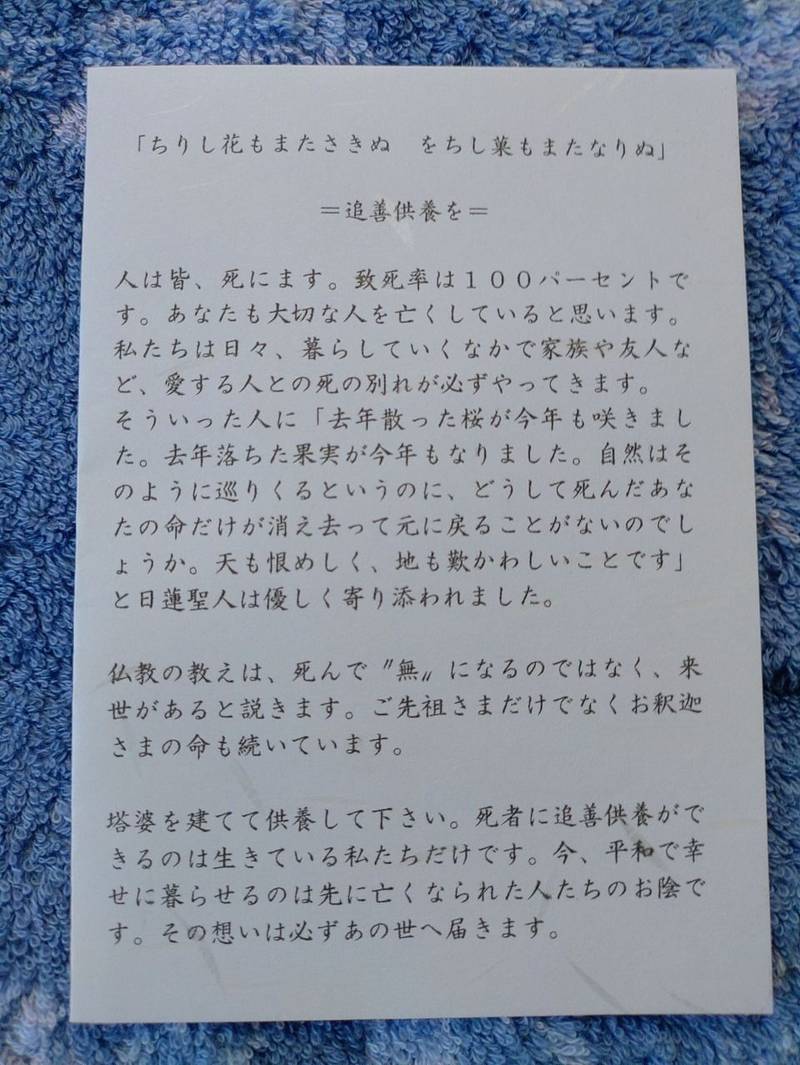 「ちりし花もまたさきぬ　をちし菓もまたなりぬ」
＝追善供養を＝
人は皆、死にます。致死率は１００パーセントで
す。あなたも大切な人を亡くしていると思います。
私たちは日々、暮らしていくなかで家族や友人な
ど、愛する人との死の別れが必ずやってきます。
そういった人に「去年散った桜が今年も咲きまし
た。去年落ちた果実が今年もなりました。自然はそ
のように巡りくるというのに、どうして死んだあな
たの命だけが消え去って元に戻ることがないのでし
ょうか。天も恨めしく、地も歎かわしいことです」
と日蓮聖人は優しく寄り添われました。
仏教の教えは、死んで〝無〟になるのではなく、来
世があると説きます。ご先祖さまだけでなくお釈迦
さまの命も続いています。
塔婆を建てて供養して下さい。死者に追善供養がで
きるのは生きている私たちだけです。今、平和で幸
せに暮らせるのは先に亡くなられた人たちのお陰で
す。その想いは必ずあの世へ届きます。